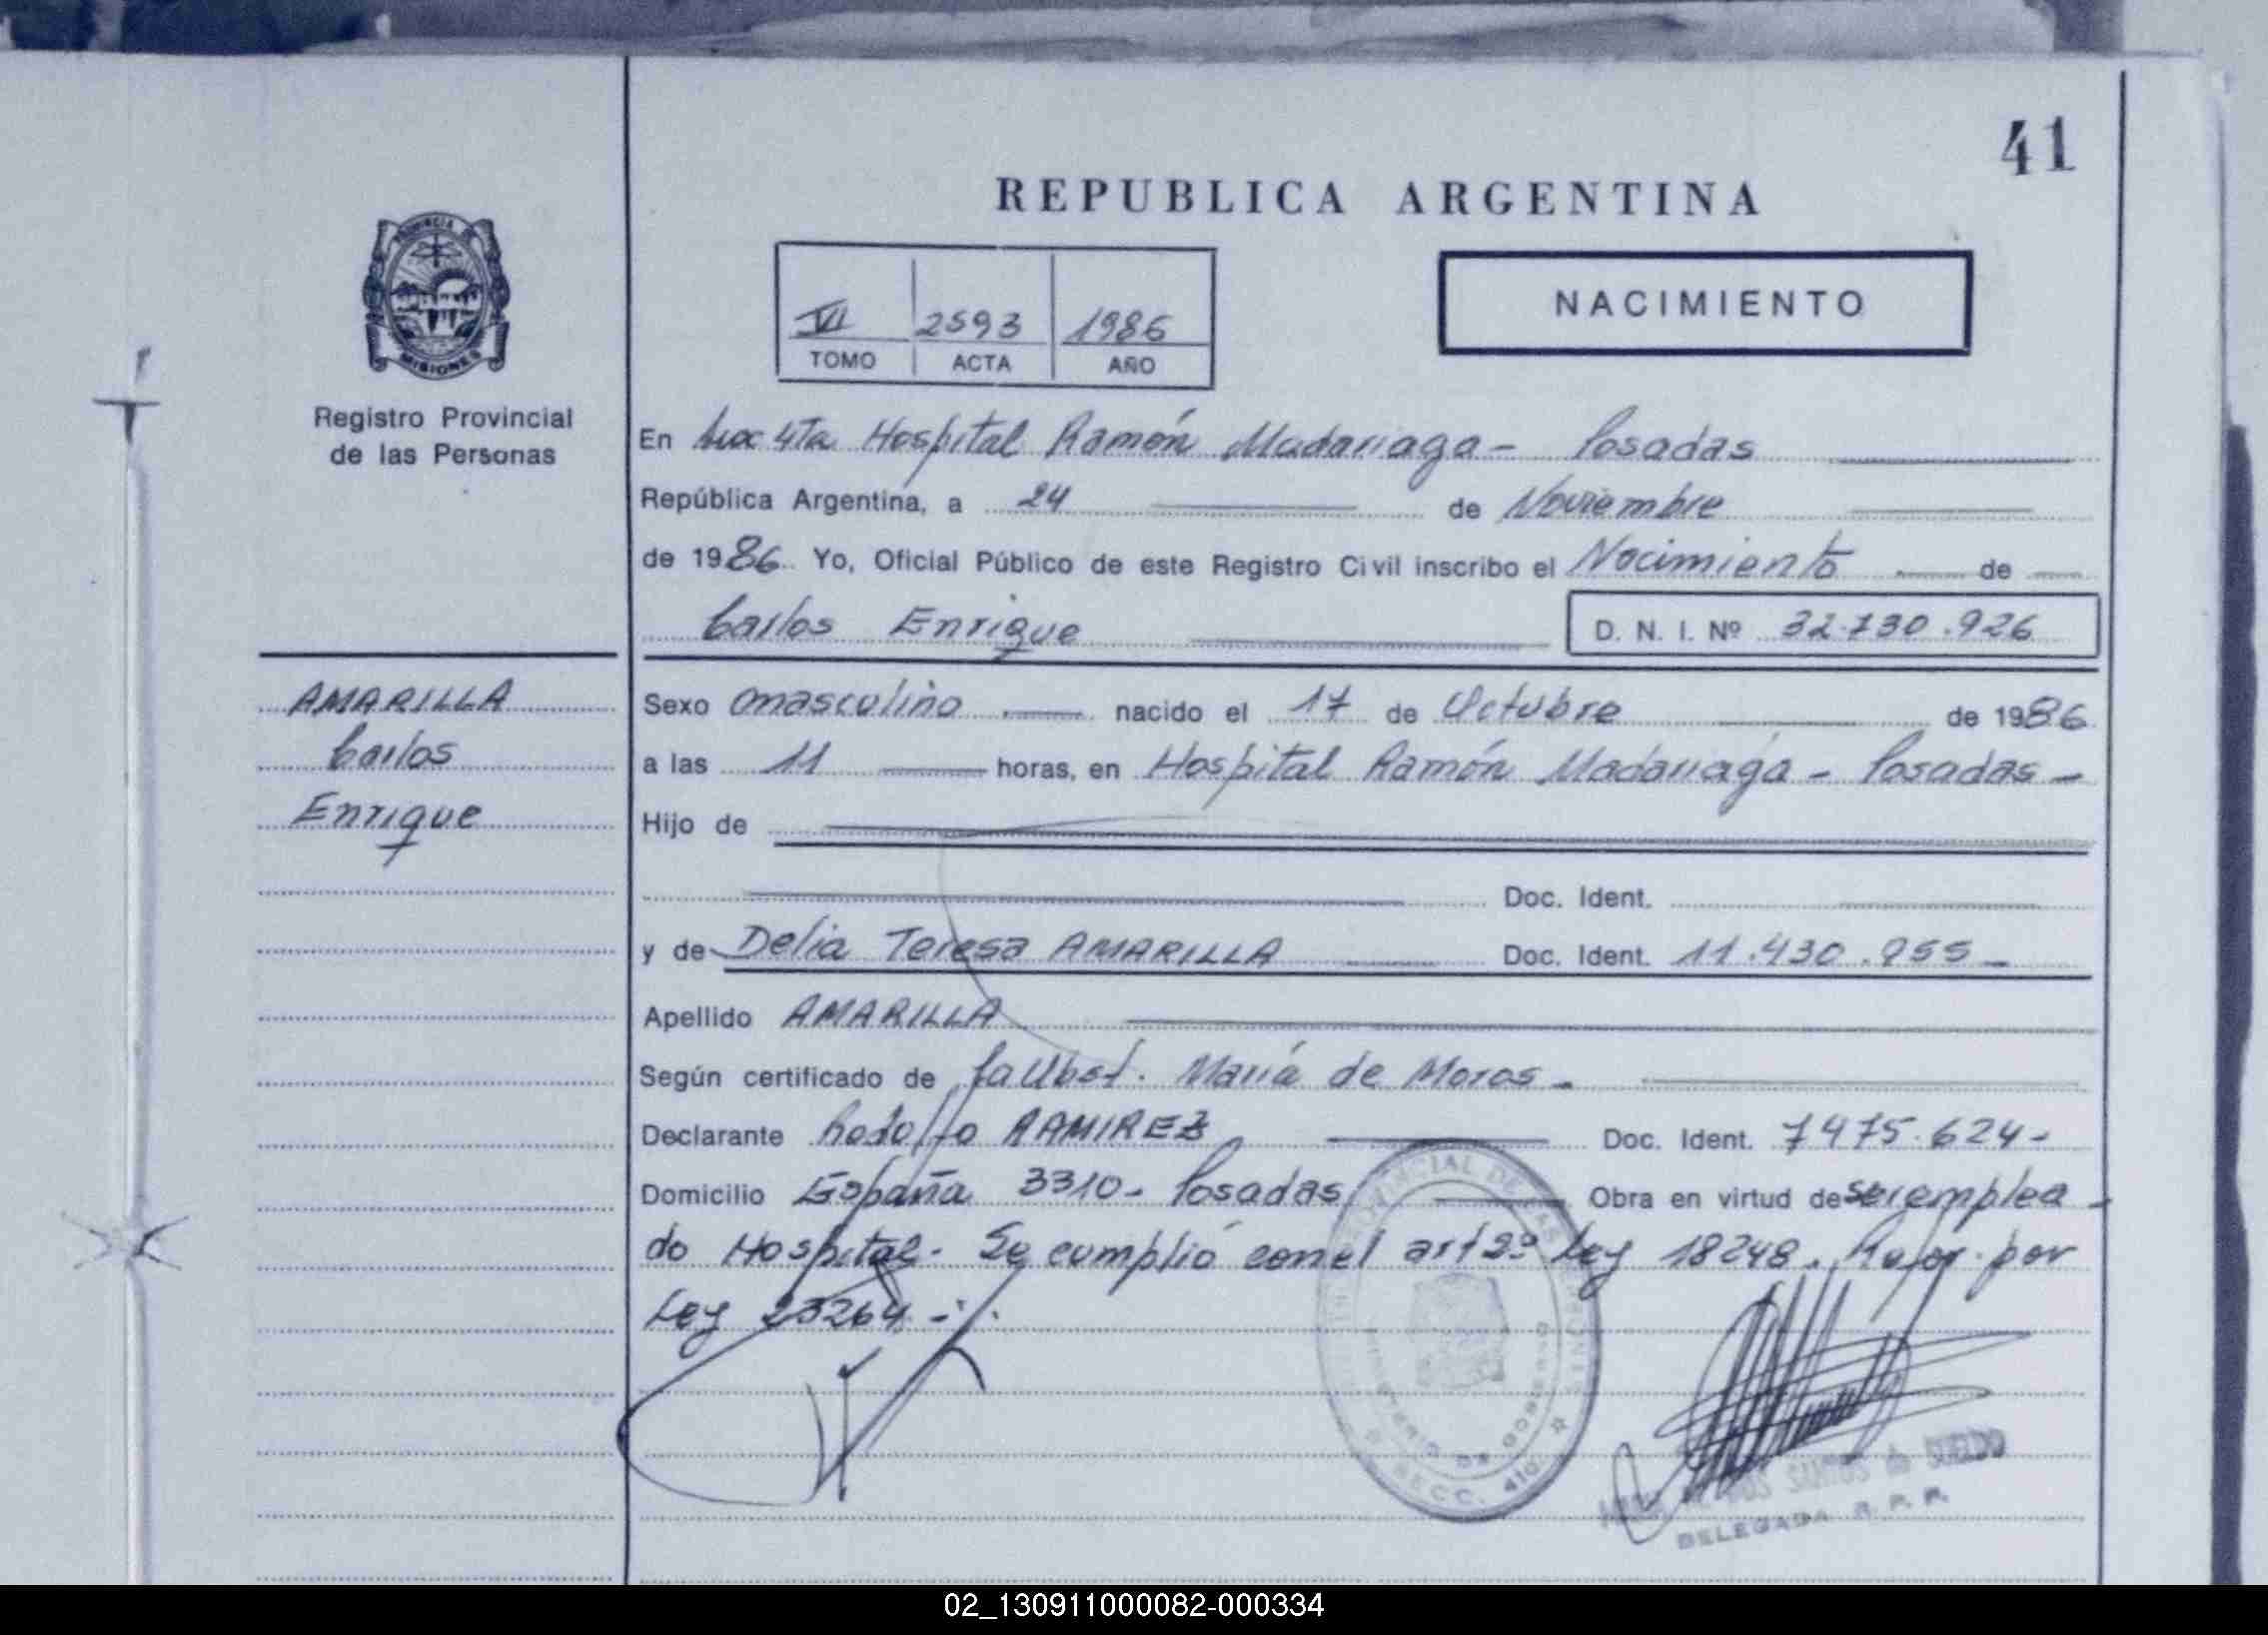 41
REPUBLICA ARGENTINA
PROVINCIA DE
MISIONES
Registro Provincial
de las Personas
VI 2593 1986
TOMO ACTA AÑO
NACIMIENTO
En Secc 4ta Hospital Ramón Madariaga - Posadas
República Argentina, a 24 de Noviembre
de 1986. Yo, Oficial Público de este Registro Civil inscribo el Nacimiento de
Carlos Enrique
D. N. I. Nº 32.730.926
AMARILLA
Carlos
Enrique
Sexo masculino nacido el 17 de Octubre de 1986
a las 11 horas, en Hospital Ramón Madariaga - Posadas -
Hijo de
Doc. Ident.
y de Delia Teresa AMARILLA Doc. Ident. 11.430.955 -
Apellido AMARILLA
Según certificado de la Obst. María de Moras -
Declarante Rodolfo RAMIREZ Doc. Ident. 7475.624 -
Domicilio España 3310 - Posadas Obra en virtud de ser emplea -
do Hospital. Se cumplió con el art 2º Ley 18248. por
Ley 23264 -
MINISTERIO DE GOBIERNO
SECC. 4ta
SANTOS de SUELDO
DELEGADA R. P. P.
02_130911000082-000334